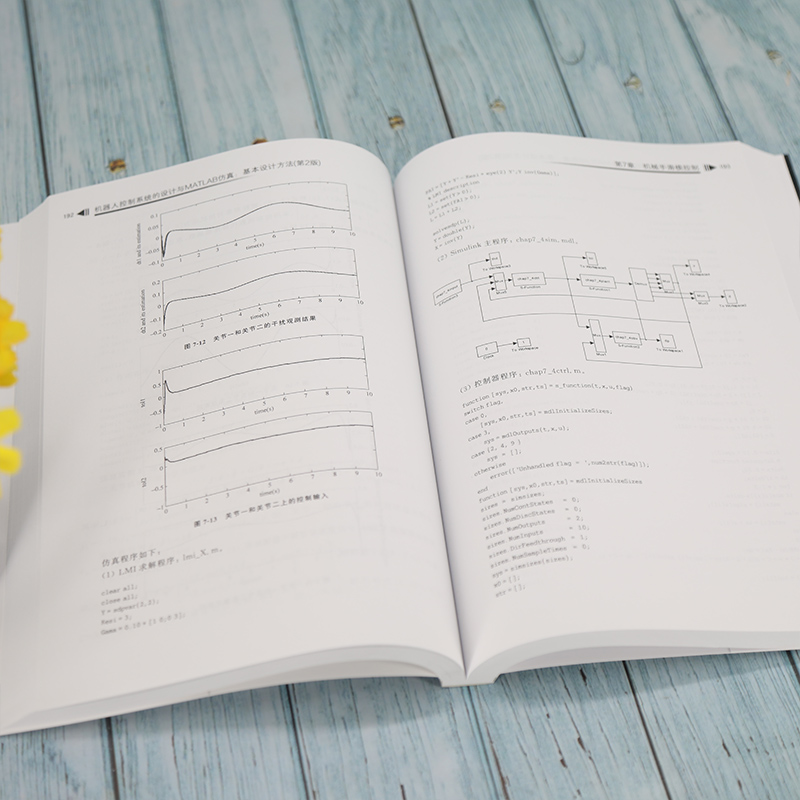 182 机器人控制系统的设计与MATLAB仿真:基本设计方法(第2版)
dt1 and its estimation
0.1
0.05
0
-0.05
-0.1
0 1 2 3 4 5 6 7 8 9 10
time(s)
dt2 and its estimation
0.2
0.1
0
-0.1
-0.2
0 1 2 3 4 5 6 7 8 9 10
time(s)
图 7-12 关节一和关节二的干扰观测结果
tol1
1
0.5
0
-0.5
-1
0 1 2 3 4 5 6 7 8 9 10
time(s)
tol2
0.5
0
-0.5
-1
0 1 2 3 4 5 6 7 8 9 10
time(s)
图 7-13 关节一和关节二上的控制输入
仿真程序如下。
(1) LMI 求解程序：lmi_X.m。
clear all;
close all;
Y = sdpvar(2,2);
第7章 机械手滑模控制 183
solvesdp(L);
Y = double(Y);
X = inv(Y)
(2) Simulink 主程序：chap7_4sim.mdl。
(3) 控制器程序：chap7_4ctrl.m。
function [sys,x0,str,ts] = s_function(t,x,u,flag)
switch flag,
case 0,
[sys,x0,str,ts] = mdlInitializeSizes;
case 3,
sys = mdlOutputs(t,x,u);
case {2, 4, 9 }
sys = [];
otherwise
error(['Unhandled flag = ',num2str(flag)]);
end
function [sys,x0,str,ts] = mdlInitializeSizes
sizes = simsizes;
sizes.NumContStates = 0;
sizes.NumDiscStates = 0;
sizes.NumOutputs = 2;
sizes.NumInputs = 10;
sizes.DirFeedthrough = 1;
sizes.NumSampleTimes = 0;
sys = simsizes(sizes);
x0 = [];
str = [];